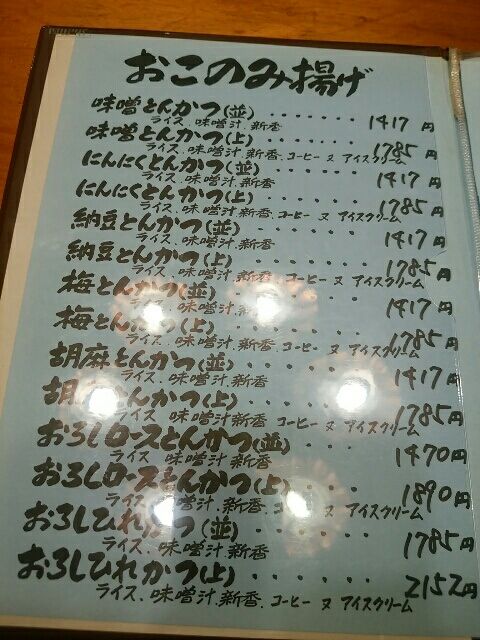 おこのみ揚げ
味噌とんかつ(並)・・・・・・・ 1417円
ライス、味噌汁、新香
味噌とんかつ(上)・・・・・・・ 1785円
ライス、味噌汁、新香、コーヒー ヌ アイスクリーム
にんにくとんかつ(並)・・・・・・ 1417円
ライス、味噌汁、新香
にんにくとんかつ(上)・・・・・・ 1785円
ライス、味噌汁、新香、コーヒー ヌ アイスクリーム
納豆とんかつ(並)・・・・・・・ 1417円
ライス、味噌汁、新香
納豆とんかつ(上)・・・・・・・ 1785円
ライス、味噌汁、新香、コーヒー ヌ アイスクリーム
梅とんかつ(並)・・・・・・・ 1417円
ライス、味噌汁、新香
梅とんかつ(上)・・・・・・・ 1785円
ライス、味噌汁、新香、コーヒー ヌ アイスクリーム
胡麻とんかつ(並)・・・・・・・ 1417円
ライス、味噌汁、新香
胡麻とんかつ(上)・・・・・・・ 1785円
ライス、味噌汁、新香 コーヒー ヌ アイスクリーム
おろしロースとんかつ(並)・・・ 1470円
ライス、味噌汁、新香
おろしロースとんかつ(上)・・・ 1890円
ライス、味噌汁、新香、コーヒー ヌ アイスクリーム
おろしひれかつ(並)・・・・・・ 1785円
ライス、味噌汁、新香
おろしひれかつ(上)・・・・・・ 2152円
ライス、味噌汁、新香、コーヒー ヌ アイスクリーム